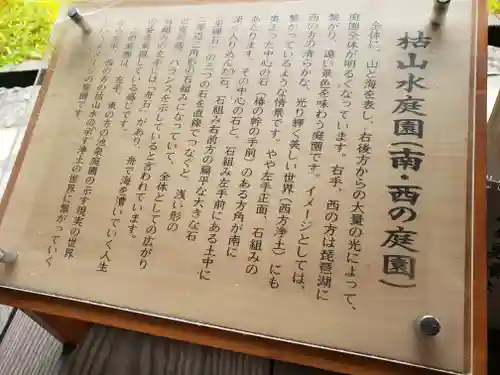 枯山水庭園(南・西の庭園)
全体に、山と海を表し、右後方からの大量の光によって、
庭園全体が明るくなっています。右手、西の方は琵琶湖に
繋がり、遠い景色を味わう庭園です。イメージとしては、
西の方の清らかな、光り輝く美しい世界(西方浄土)にも
繋がっているような情景です。やや左手正面、石組みの
奥まった中心の石(椿の幹の手前)のある方角が南に
あたります。その中心の石と、石組み左手前にある土中に
入り込んだ石、石組み右前方の扁平な大きな石
の三つの石を直線でつなぐと、浅い形の
二等辺三角形の石組みになっていて、全体としての広がり
と安定感、バランスを示していると言われています。
石組の左手には「舟石」があり、舟で海を漕いでいく人生
を象徴している感じです。
左手、東の方の池泉庭園の示す現実の世界
西の方の枯山水の示す浄土の世界に繋がっていく
の庭園です。